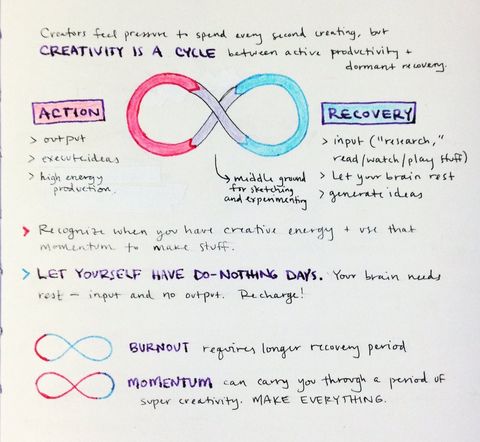 Creators feel pressure to spend every second creating, but
CREATIVITY IS A CYCLE between active productivity +
dormant recovery.
ACTION
> output
> execute ideas
> high energy
production.
middle ground
for sketching
and experimenting
RECOVERY
> input ("research,"
read/watch/play stuff)
> Let your brain rest
> generate ideas
> Recognize when you have creative energy + use that
momentum to make stuff.
> LET YOURSELF HAVE DO-NOTHING DAYS. Your brain needs
rest – input and no output. Recharge!
BURNOUT requires longer recovery period
MOMENTUM can carry you through a period of
super creativity. MAKE EVERYTHING.